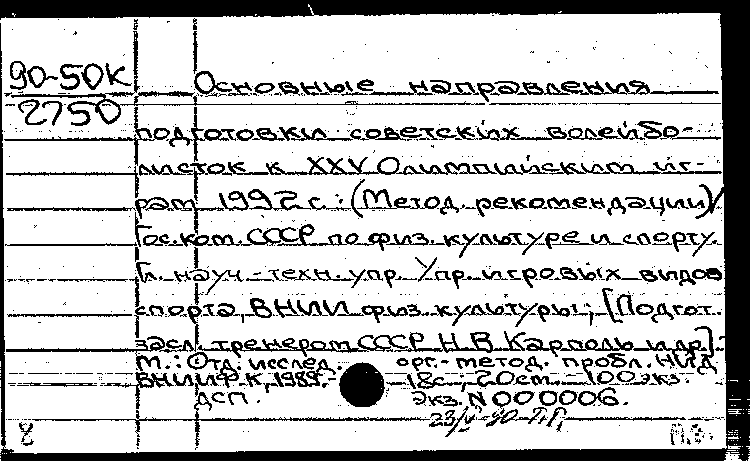 90-50К
2750
Основные направления
подготовки советских волейбо-
листок к XXV Олимпийским иг-
рам 1992 г.: (Метод. рекомендации)/
Гос.ком. СССР по физ. культуре и спорту.
Гл. науч.-техн. упр. Упр. игровых видов
спорта, ВНИИ физ. культуры; [Подгот.
засл. тренером СССР Н.В. Карполь и др].-
М.: Отд. исслед. орг.-метод. пробл. НИД
ВНИИФК, 1989.- 18с.; 20см. 100экз.
ДСП. Экз. N 000006.
23/V-90
8 М.Э.